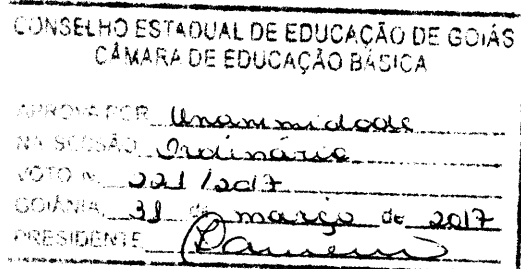 CONSELHO ESTADUAL DE EDUCAÇÃO DE GOIÁS
CÂMARA DE EDUCAÇÃO BÁSICA
APROVA POR Unanimidade
NA SESSÃO Ordinária
VOTO N. 221/2017
GOIÂNIA, 31 de março de 2017
PRESIDENTE